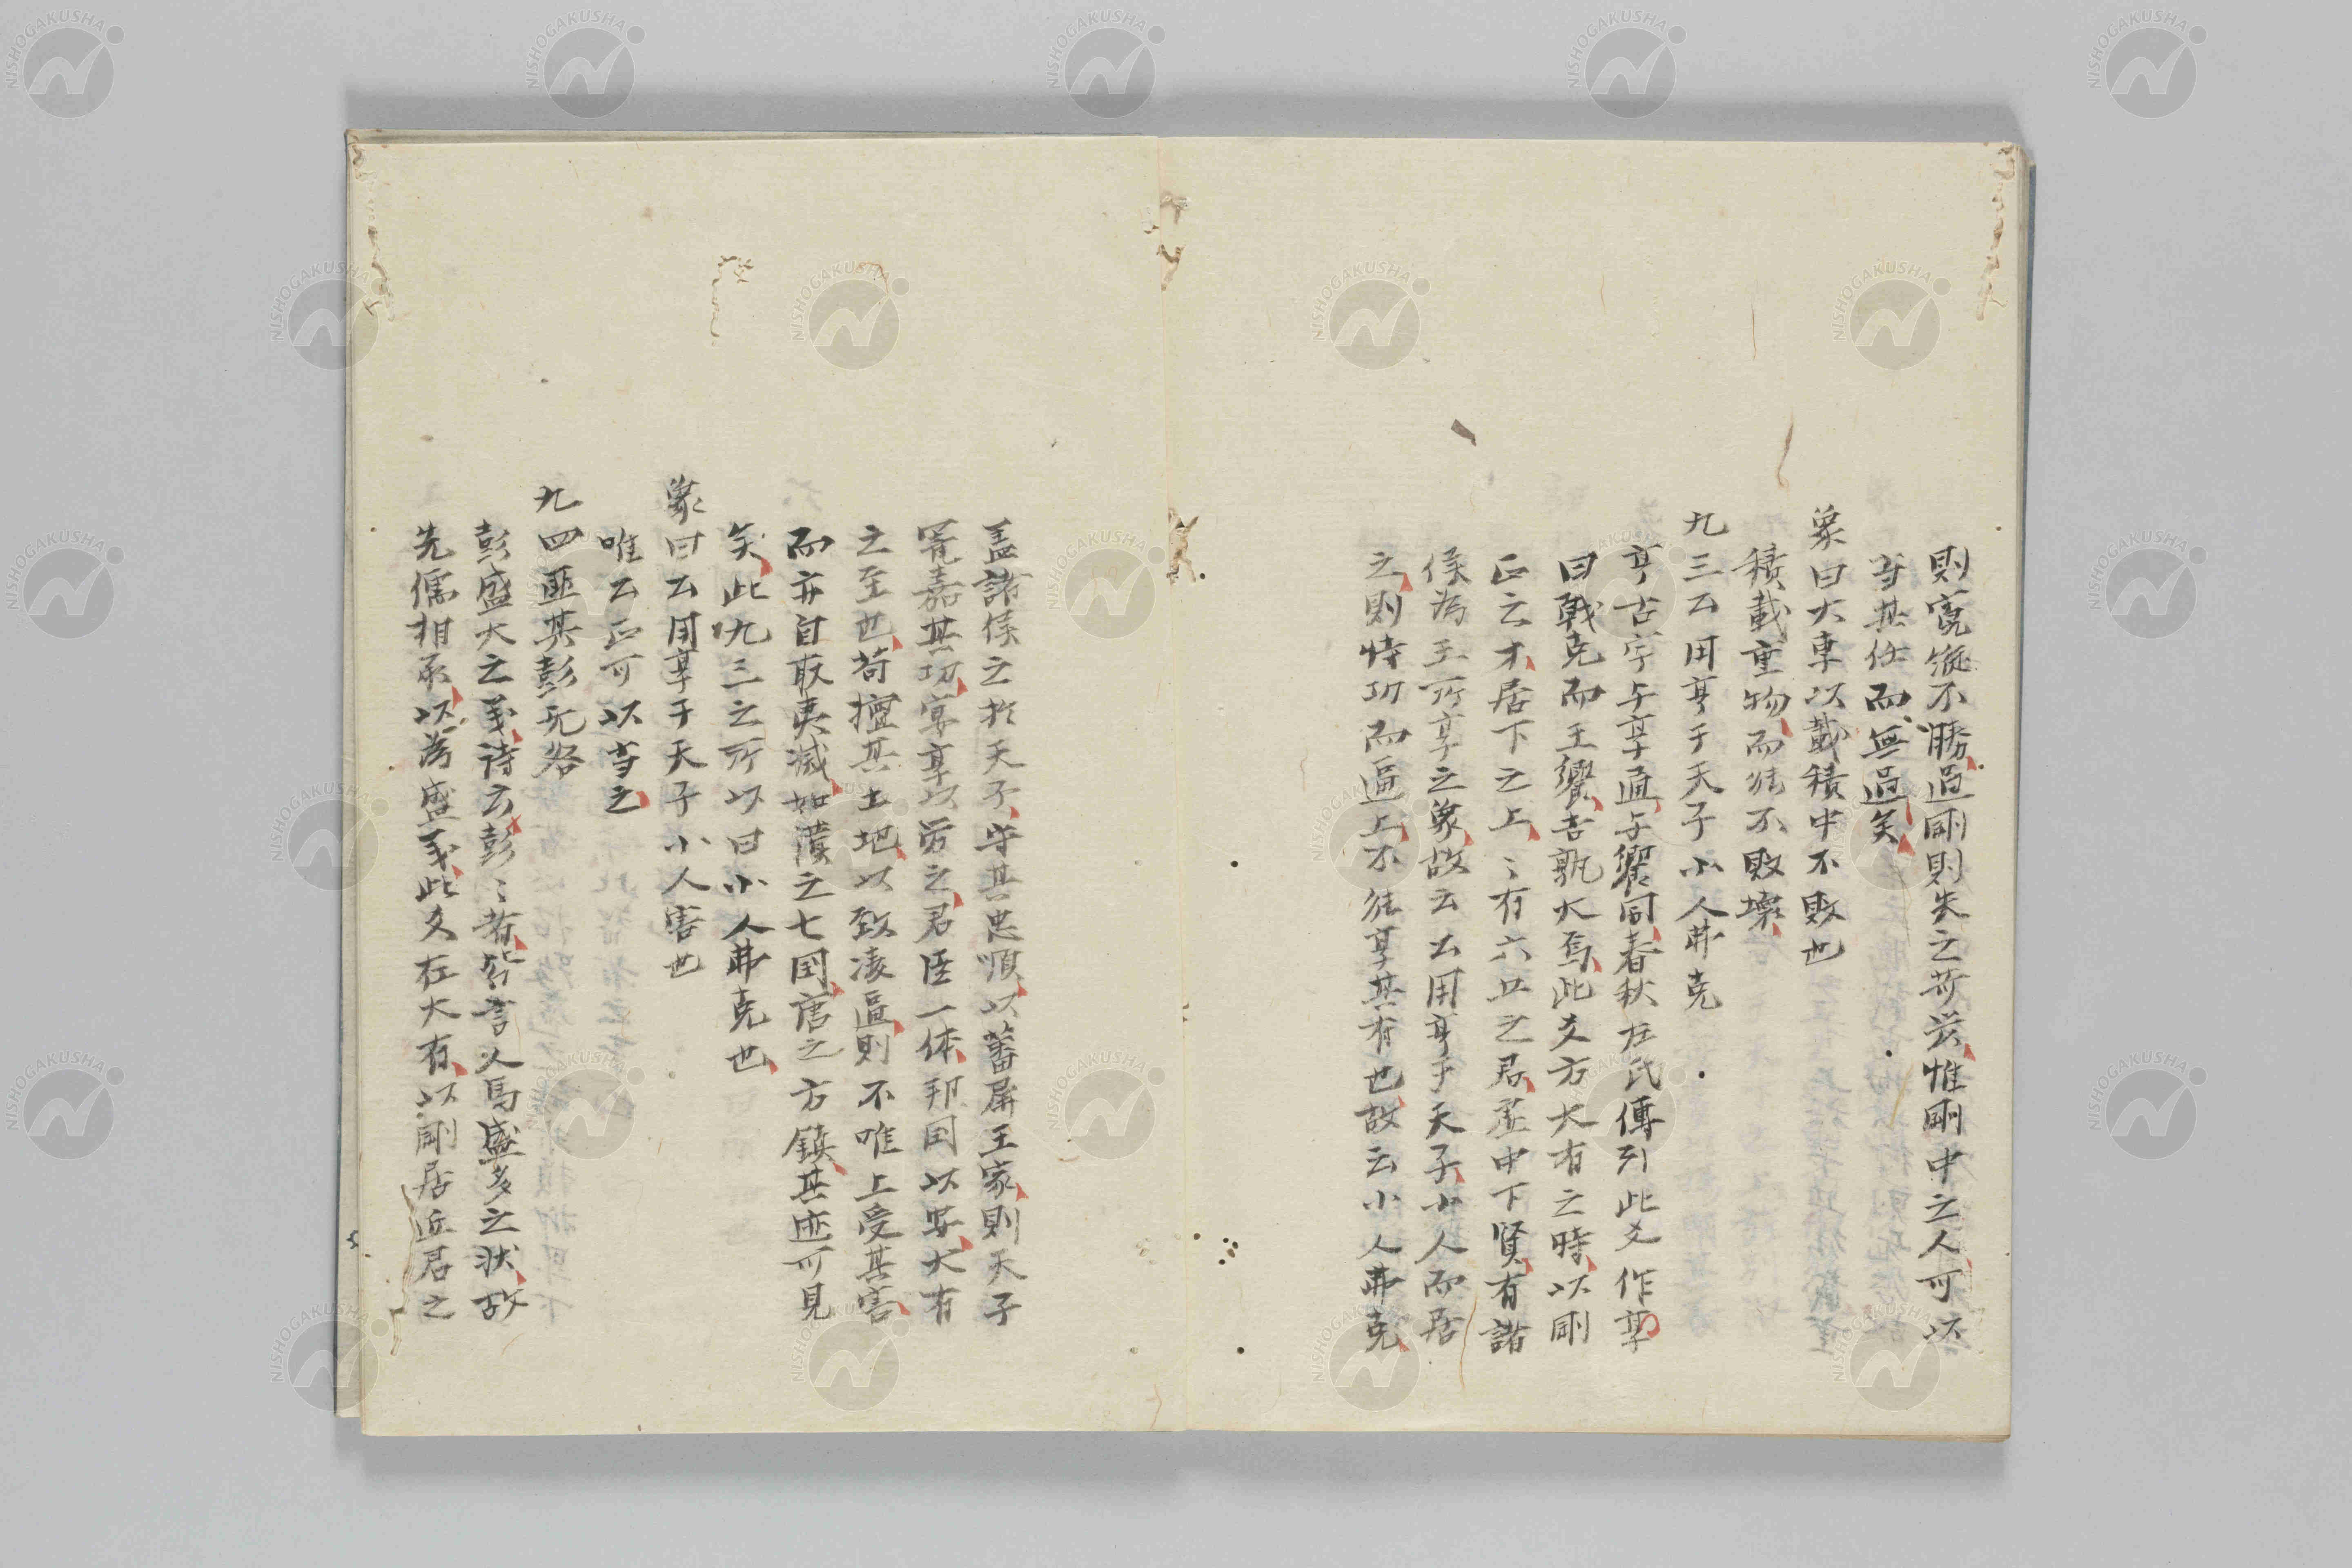 則寬縱不勝過剛則失之苛災惟剛中之人可以
当其任而無過矣
象曰大車以載積中不敗也
積載重物而能不敗壊
九三公用亨于天子小人弗克
亨古字与享通与饗同春秋左氏傳引此爻作享
曰戰克而王饗吉孰大焉此爻方大有之時以剛
正之才居下之上〻有六五之君虚中下賢有諸
侯為王所享之象故云公用亨于天子小人而居
之則恃功而逼上不能享其有也故云小人弗克
盖諸侯之於天子守其忠順以蕃屏王家則天子
寵嘉其功宴享以労之君臣一体邦国以安大有
之至也苟擅其土地以致凌逼則不唯上受其害
而亦自取夷滅如漢之七国唐之方鎮其迹可見
矣此九三之所以曰小人弗克也
象曰公用享于天子小人害也
唯公正可以当之
九四匪其彭无咎
彭盛大之義詩云彭〻者皆言人馬盛多之状故
先儒相承以為盛義此爻在大有以剛居近君之
NISHOGAKUSHA